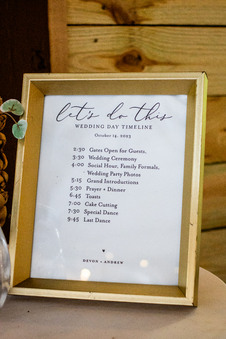 let's do this
WEDDING DAY TIMELINE
October 14, 2023
2:30 Gates Open for Guests.
3:30 Wedding Ceremony
4:00 Social Hour, Family Formals,
Wedding Party Photos
5:15 Grand Introductions
5:30 Prayer + Dinner
6:45 Toasts
7:00 Cake Cutting
7:30 Special Dance
9:45 Last Dance
DEVON + ANDREW